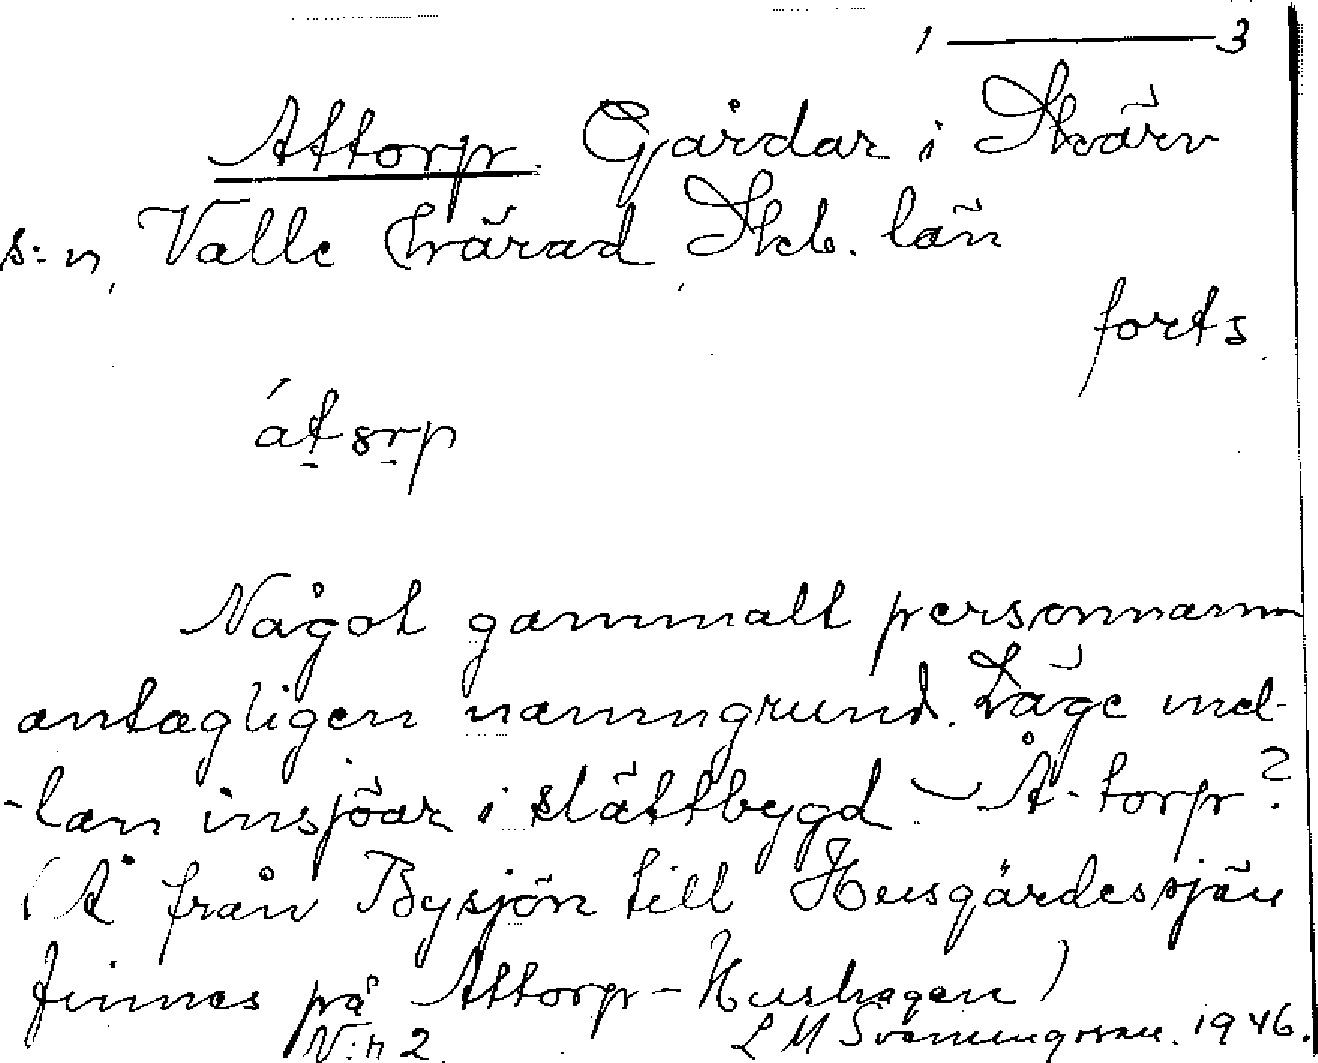 1 — 3
Attorp. Gårdar i Skärv
s:n, Valle härad, Skb. län
forts.
átorp
Något gammalt personnamn
antagligen namngrund. Läge mel-
-lan insjöar i slättbygd. – Å-torp?
(Å från Bysjön till Husgärdessjön
finnes på Attorp-Hushagen)
N:r 2 L M Svenungsson. 1946.